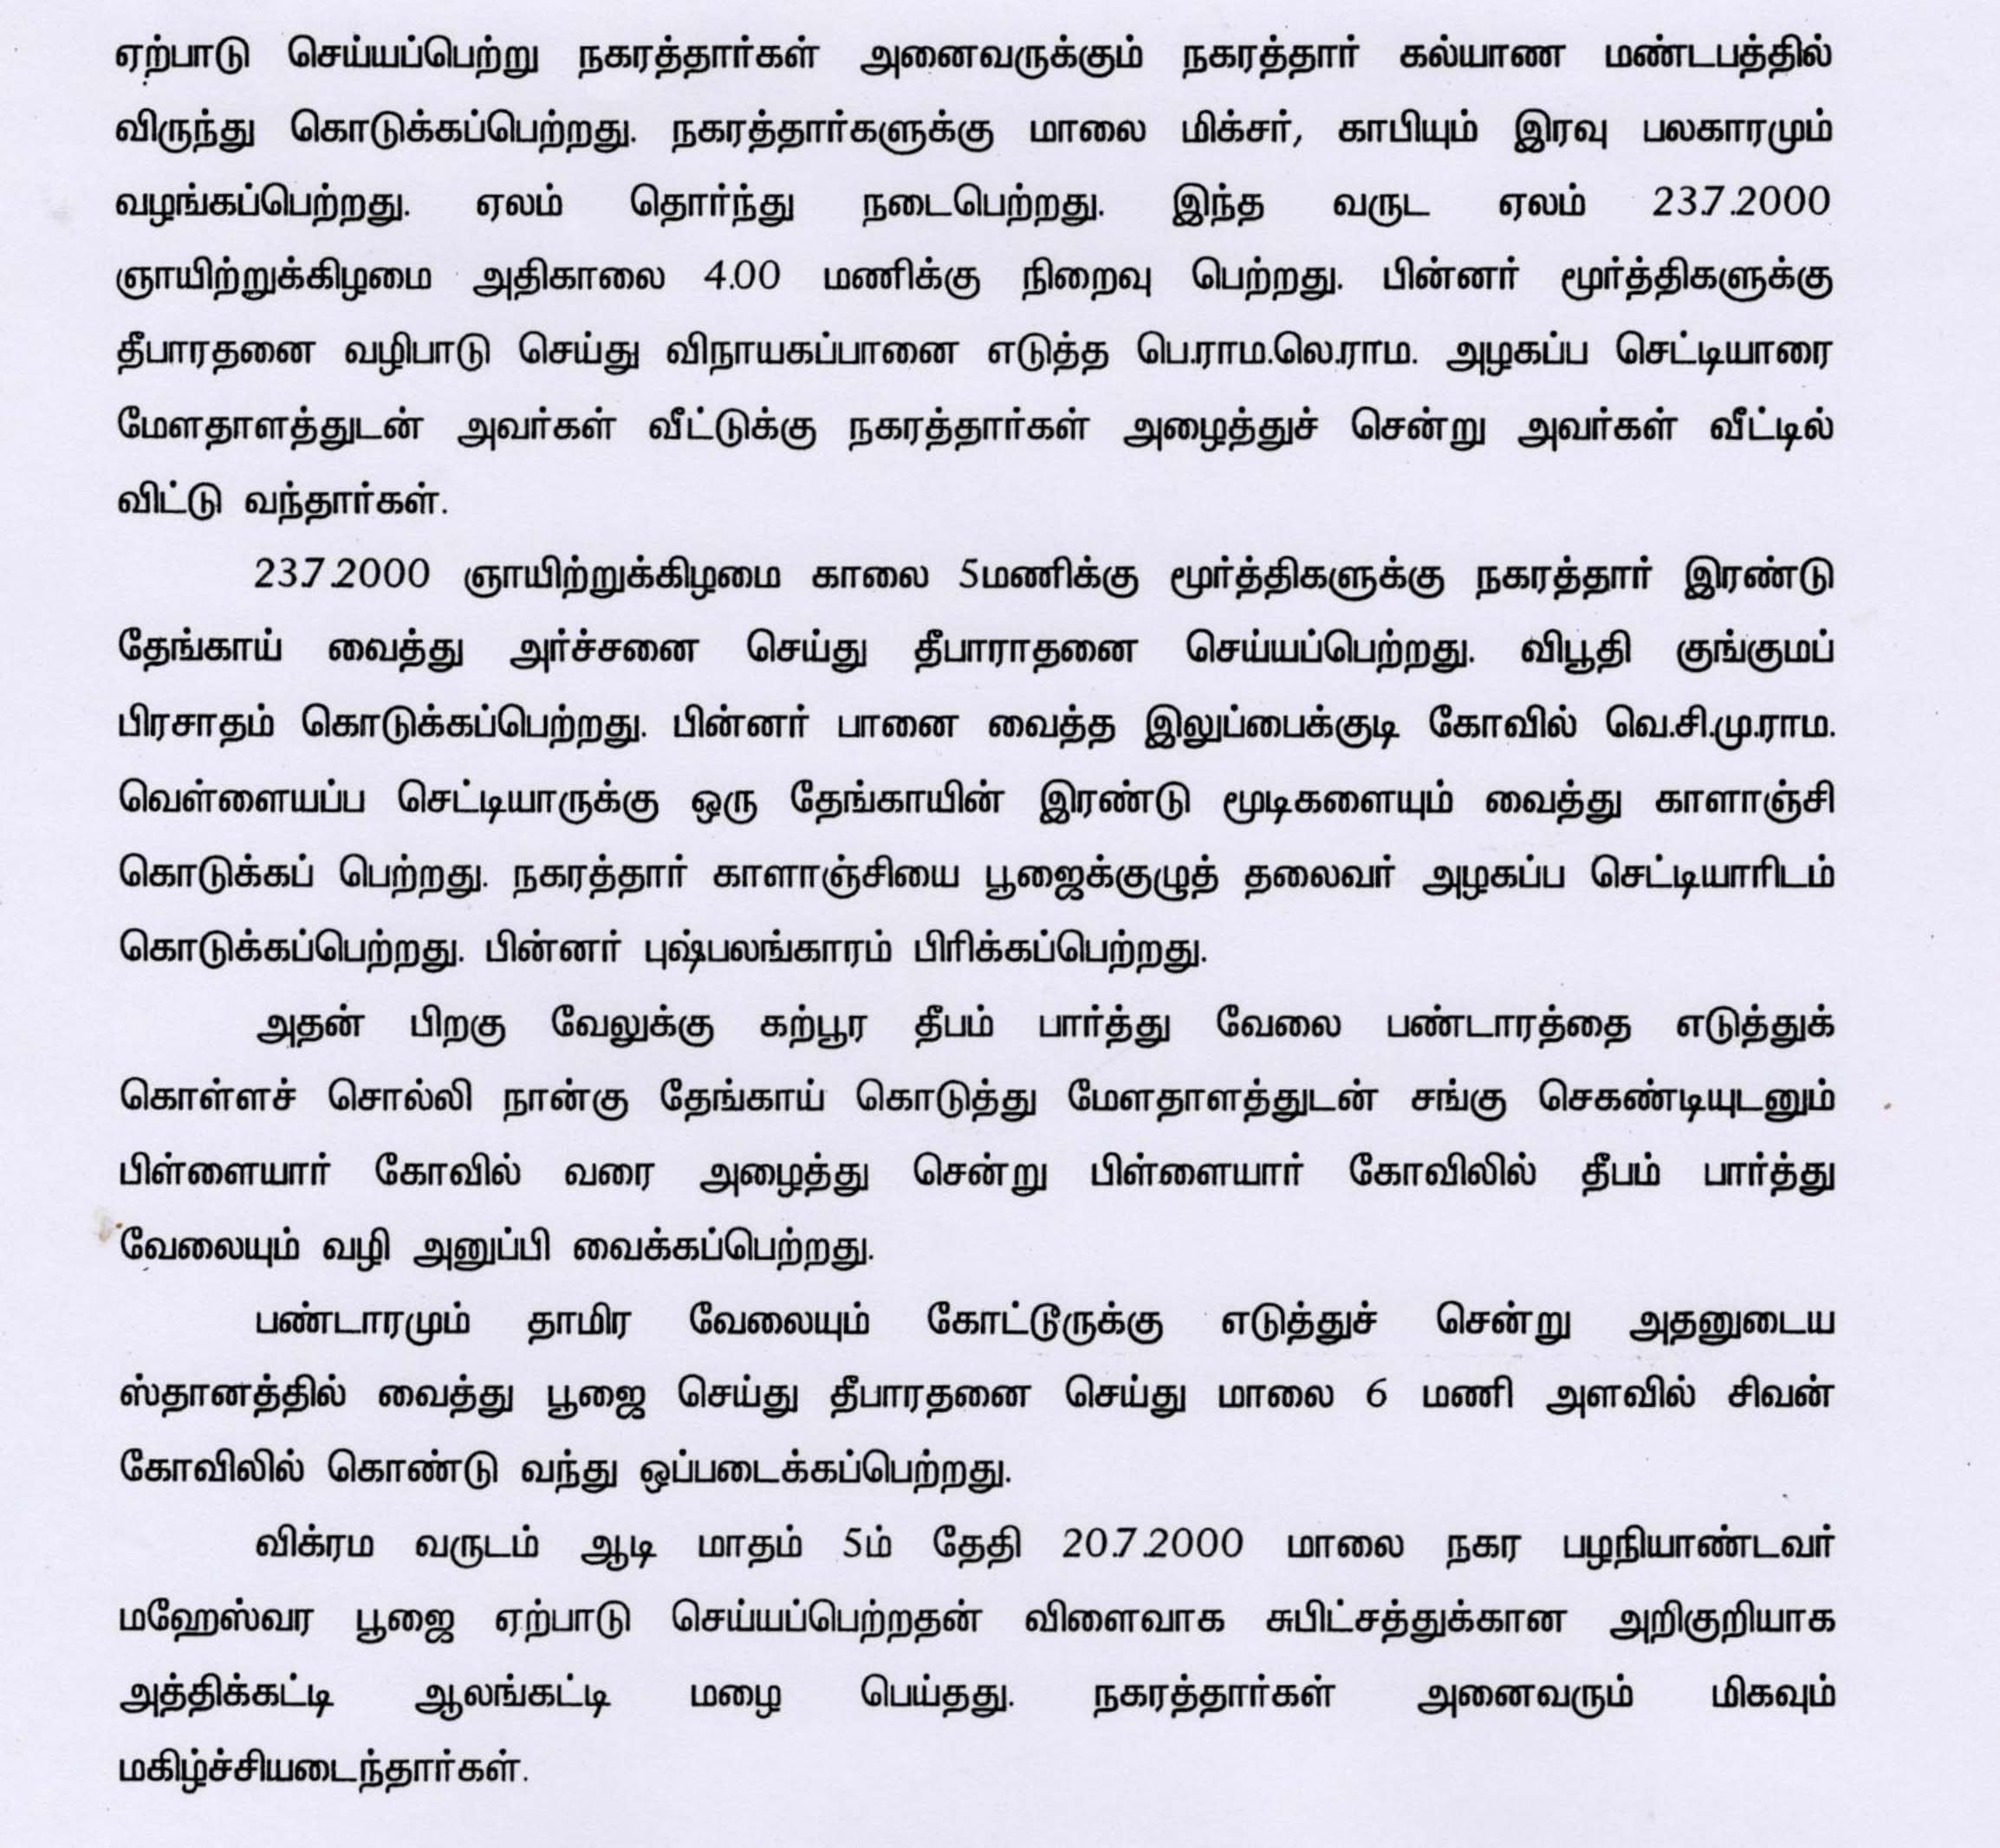 ஏற்பாடு செய்யப்பெற்று நகரத்தார்கள் அனைவருக்கும் நகரத்தார் கல்யாண மண்டபத்தில்
விருந்து கொடுக்கப்பெற்றது. நகரத்தார்களுக்கு மாலை மிக்சர், காபியும் இரவு பலகாரமும்
வழங்கப்பெற்றது. ஏலம் தொர்ந்து நடைபெற்றது. இந்த வருட ஏலம் 23.7.2000
ஞாயிற்றுக்கிழமை அதிகாலை 4.00 மணிக்கு நிறைவு பெற்றது. பின்னர் மூர்த்திகளுக்கு
தீபாரதனை வழிபாடு செய்து விநாயகப்பானை எடுத்த பெ.ராம.லெ.ராம. அழகப்ப செட்டியாரை
மேளதாளத்துடன் அவர்கள் வீட்டுக்கு நகரத்தார்கள் அழைத்துச் சென்று அவர்கள் வீட்டில்
விட்டு வந்தார்கள்.
23.7.2000 ஞாயிற்றுக்கிழமை காலை 5மணிக்கு மூர்த்திகளுக்கு நகரத்தார் இரண்டு
தேங்காய் வைத்து அர்ச்சனை செய்து தீபாராதனை செய்யப்பெற்றது. விபூதி குங்குமப்
பிரசாதம் கொடுக்கப்பெற்றது. பின்னர் பானை வைத்த இலுப்பைக்குடி கோவில் வெ.சி.மு.ராம.
வெள்ளையப்ப செட்டியாருக்கு ஒரு தேங்காயின் இரண்டு மூடிகளையும் வைத்து காளாஞ்சி
கொடுக்கப் பெற்றது. நகரத்தார் காளாஞ்சியை பூஜைக்குழுத் தலைவர் அழகப்ப செட்டியாரிடம்
கொடுக்கப்பெற்றது. பின்னர் புஷ்பலங்காரம் பிரிக்கப்பெற்றது.
அதன் பிறகு வேலுக்கு கற்பூர தீபம் பார்த்து வேலை பண்டாரத்தை எடுத்துக்
கொள்ளச் சொல்லி நான்கு தேங்காய் கொடுத்து மேளதாளத்துடன் சங்கு செகண்டியுடனும்
பிள்ளையார் கோவில் வரை அழைத்து சென்று பிள்ளையார் கோவிலில் தீபம் பார்த்து
வேலையும் வழி அனுப்பி வைக்கப்பெற்றது.
பண்டாரமும் தாமிர வேலையும் கோட்டூருக்கு எடுத்துச் சென்று அதனுடைய
ஸ்தானத்தில் வைத்து பூஜை செய்து தீபாரதனை செய்து மாலை 6 மணி அளவில் சிவன்
கோவிலில் கொண்டு வந்து ஒப்படைக்கப்பெற்றது.
விக்ரம வருடம் ஆடி மாதம் 5ம் தேதி 20.7.2000 மாலை நகர பழநியாண்டவர்
மஹேஸ்வர பூஜை ஏற்பாடு செய்யப்பெற்றதன் விளைவாக சுபிட்சத்துக்கான அறிகுறியாக
அத்திக்கட்டி ஆலங்கட்டி மழை பெய்தது. நகரத்தார்கள் அனைவரும் மிகவும்
மகிழ்ச்சியடைந்தார்கள்.